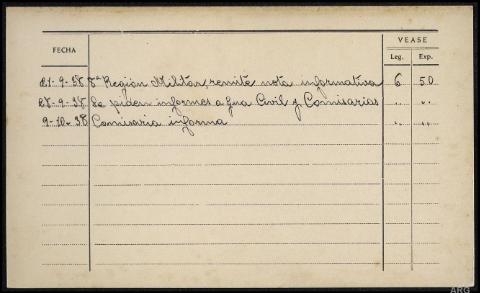 VEASE
FECHA Leg. Exp.
21-9-38 8ª Región Militar, remite nota informativa 6 50
28-9-38 Se piden informes a Gua Civil y Comisarias " "
9-10-38 Comisaria informa " "
ARG